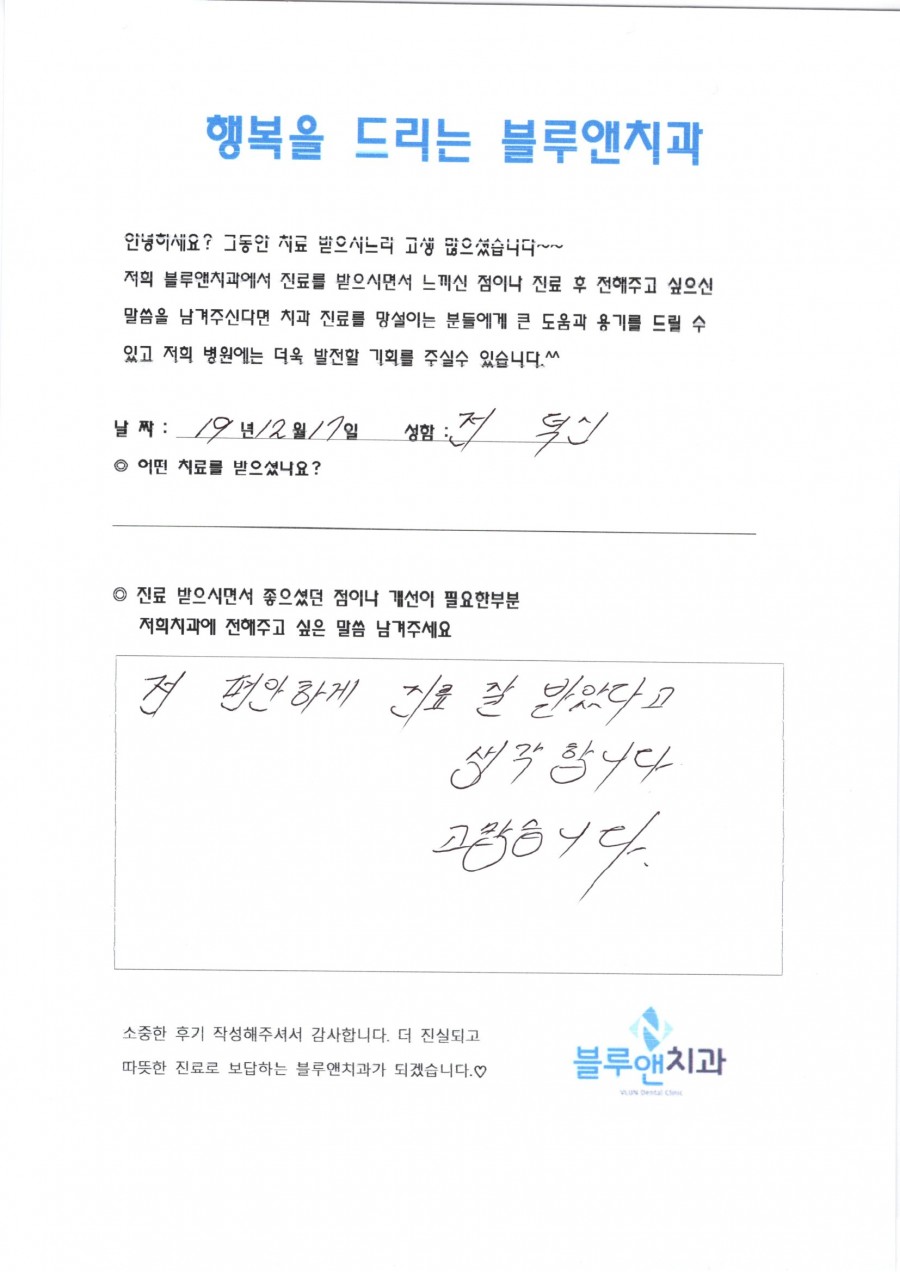 행복을 드리는 블루앤치과
안녕하세요? 그동안 치료 받으시느라 고생 많으셨습니다~~
저희 블루앤치과에서 진료를 받으시면서 느끼신 점이나 진료 후 전해주고 싶으신
말씀을 남겨주신다면 치과 진료를 망설이는 분들에게 큰 도움과 용기를 드릴 수
있고 저희 병원에는 더욱 발전할 기회를 주실수 있습니다.^^
날 짜 : 19 년 12 월 17 일 성함 : 전 덕신
◎ 어떤 치료를 받으셨나요?
◎ 진료 받으시면서 좋으셨던 점이나 개선이 필요한부분
저희치과에 전해주고 싶은 말씀 남겨주세요
전 편안하게 진료 잘 받았다고
생각합니다
고맙습니다.
소중한 후기 작성해주셔서 감사합니다. 더 진실되고
따뜻한 진료로 보답하는 블루앤치과가 되겠습니다.♡
블루앤치과
Dental Clinic